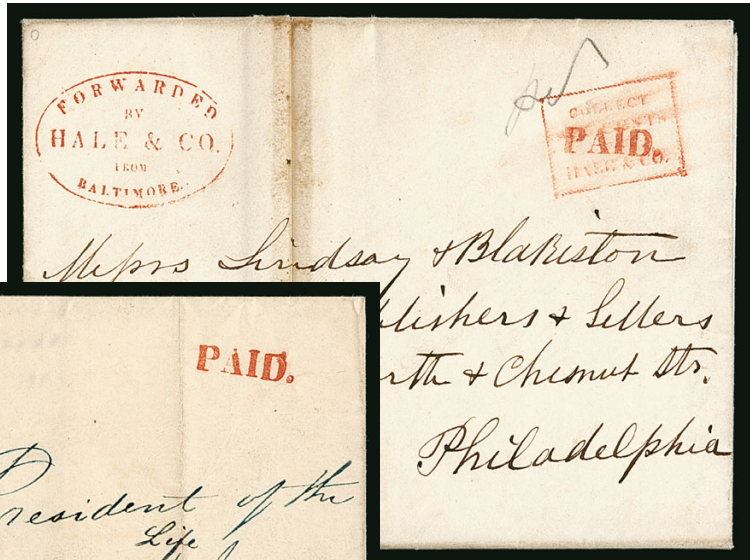 FORWARDED
BY
HALE & CO.
FROM
BALTIMORE.
pd
COLLECT
CENTS
PAID.
HALE & CO.
Messrs Lindsay & Blakiston
blishers & Sellers
rth & Chesnut Sts.
Philadelphia
PAID.
President of the
Life